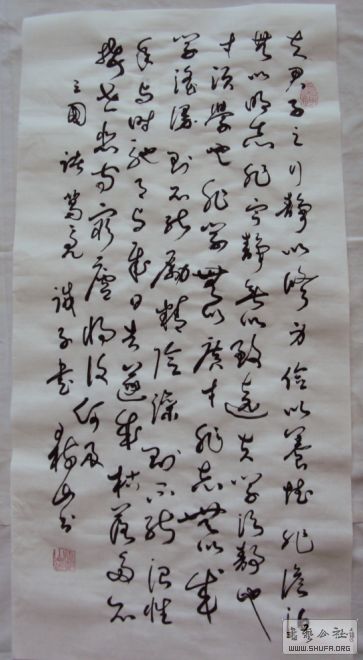 夫君子之行静以修身俭以养德非澹泊
无以明志非宁静无以致远夫学须静也
才须学也非学无以广才非志无以成
学淫漫则不能励精险躁则不能治性
年与时驰意与岁日去遂成枯落多不
接世悲守穷庐将复何及
三国诸葛亮诫子书
书艺公社
WWW.SHUFA.ORG